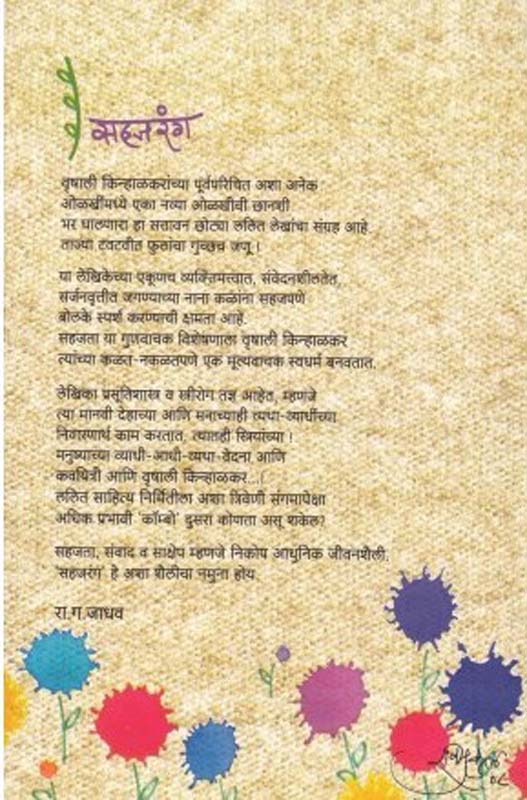 सहजरंग
वृषाली किन्हाळकरांच्या पूर्वपरिचित अशा अनेक
ओळखींमध्ये एका नव्या ओळखीची छानशी
भर घालणारा हा सत्तावन छोट्या ललित लेखांचा संग्रह आहे.
ताज्या टवटवीत फुलांचा गुच्छच जणू !
या लेखिकेच्या एकूणच व्यक्तिमत्त्वात, संवेदनशीलतेत,
सर्जनवृत्तीत जगण्याच्या नाना कळांना सहजपणे
बोलके स्पर्श करण्याची क्षमता आहे.
सहजता या गुणवाचक विशेषणाला वृषाली किन्हाळकर
त्यांच्या कळत-नकळतपणे एक मूल्यवाचक स्वधर्म बनवतात.
लेखिका प्रसूतिशास्त्र व स्त्रीरोग तज्ञ आहेत, म्हणजे
त्या मानवी देहाच्या आणि मनाच्याही व्यथा-व्याधींच्या
निवारणार्थ काम करतात, त्यातही स्त्रियांच्या !
मनुष्याच्या व्याधी-आधी-व्यथा-वेदना आणि
कवयित्री आणि वृषाली किन्हाळकर...!
ललित साहित्य निर्मितीला अशा त्रिवेणी संगमापेक्षा
अधिक प्रभावी 'कॉम्बो' दुसरा कोणता असू शकेल?
सहजता, संवाद व साक्षेप म्हणजे निकोप आधुनिक जीवनशैली.
'सहजरंग' हे अशा शैलीचा नमुना होय.
रा.ग.जाधव